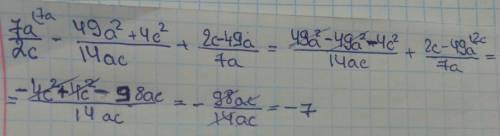 7a^(7a / 2c - 49a² + 4c² / 14ac + 2c - 49a / 7a = 49a² - 49a² - 4c² / 14ac + 2c - 49a^(2c / 7a =
= -4c² + 4c² - 98ac / 14ac = - 98ac / 14ac = -7